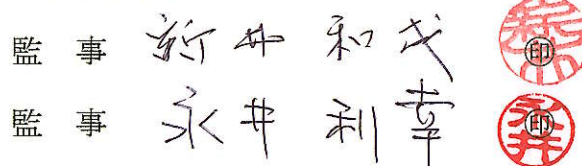 監 事 新井 和成 ㊞
監 事 永井 利幸 ㊞